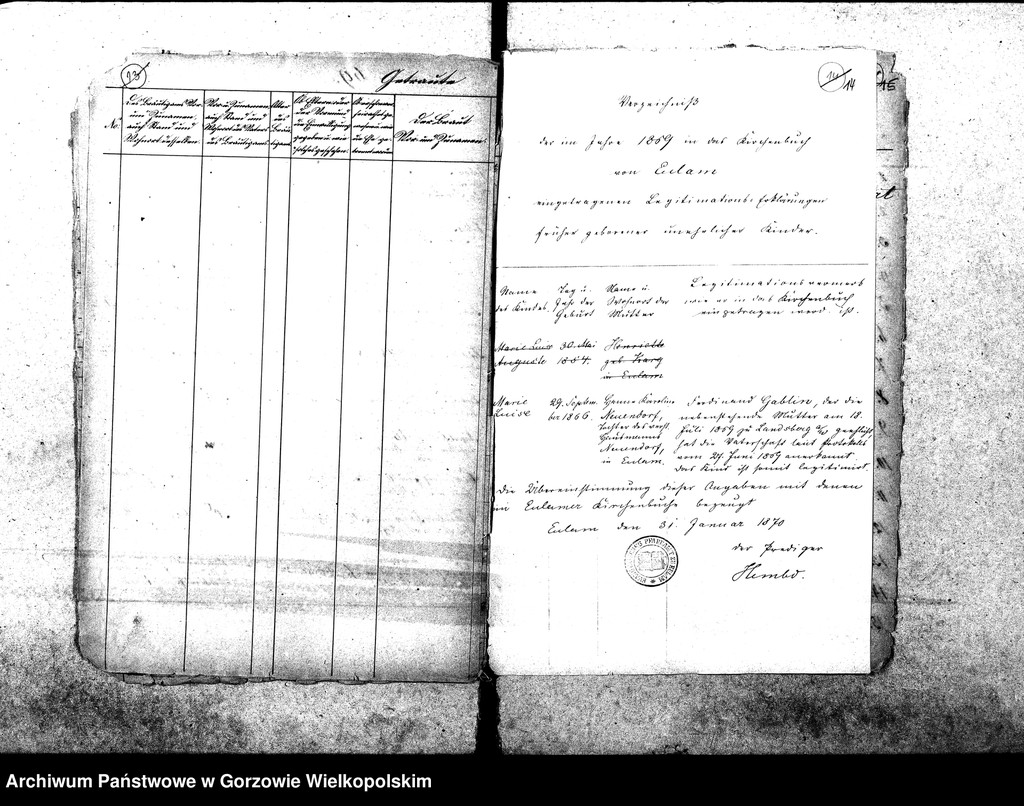 23
Getraute
No.
Des Bräutigams Vor-
und Zunamen
auch Stand und
Wohnort desselben.
Vor- u. Zunamen
auch Stand und
Wohnort des Vaters
des Bräutigams
Alter
des
Bräu-
tigams
Der Braut
Vor- und Zunamen
14
14
Verzeichniß
der im Jahre 1869 in das Kirchenbuch
von Eulam
eingetragenen Legitimations-Erklärungen
früher geborener unehelicher Kinder.
Name
des Kindes.
Tag u.
Jahr der
Geburt
Name u.
Wohnort der
Mutter
Legitimationsvermerk
wie er in das Kirchenbuch
eingetragen word. ist.
Marie Luise
Auguste
30. Mai
1854.
Henriette
geb.
in Eulam
Marie
Luise
29. Septem-
ber 1866.
Hanne Karoline
Neuendorf,
Tochter des verst.
Neuendorf,
in Eulam.
Ferdinand Gablin, der die
nebenstehende Mutter am 18.
Juli 1869 zu Landsberg a/W geehelicht,
hat die Vaterschaft laut Protokolls
vom 27. Juni 1869 anerkannt.
Das Kind ist somit legitimirt.
Die Übereinstimmung dieser Angaben mit denen
im Eulamer Kirchenbuche bezeugt
Eulam den 31. Januar 1870
der Prediger
Hembd.
Archiwum Państwowe w Gorzowie Wielkopolskim